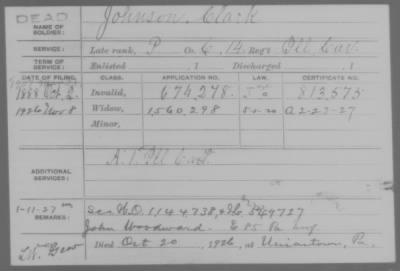 DEAD
Johnson, Clark
NAME OF SOLDIER:
SERVICE:
Late rank, P Co. C, 14 Reg't Ill Cav.
TERM OF SERVICE:
Enlisted , 1 Discharged , 1
DATE OF FILING. CLASS. APPLICATION NO. LAW. CERTIFICATE NO.
1888 Oct 2 Invalid, 674,278. 813,575
1926 Nov 8 Widow, 1560,298 5-1-20 A 2-23-27
Minor,
ADDITIONAL SERVICES:
K Ill Cav.
1-11-27
REMARKS:
See W.O. 1144738, & 549727
John Woodward. E 85 Pa Inf
Died Oct 20, 1926, at Uniontown, Pa.